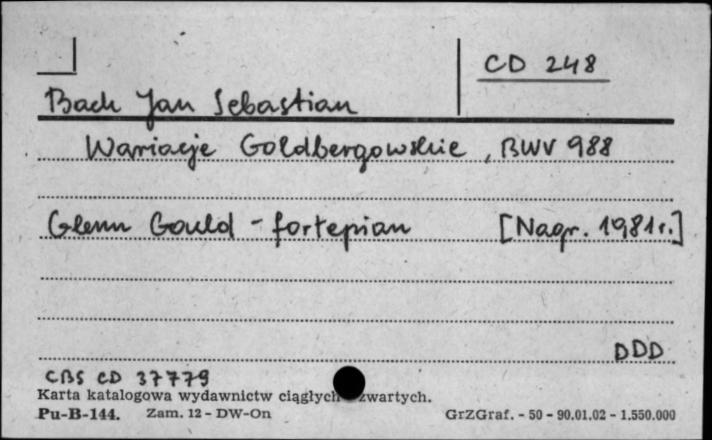 CD 248
Bach Jan Sebastian
Wariacje Goldbergowskie, BWV 988
Glenn Gould - fortepian [Nagr. 1981r.]
DDD
CBS CD 37779
Karta katalogowa wydawnictw ciągłych zwartych.
Pu-B-144. Zam. 12 - DW-On GrZGraf. - 50 - 90.01.02 - 1.550.000